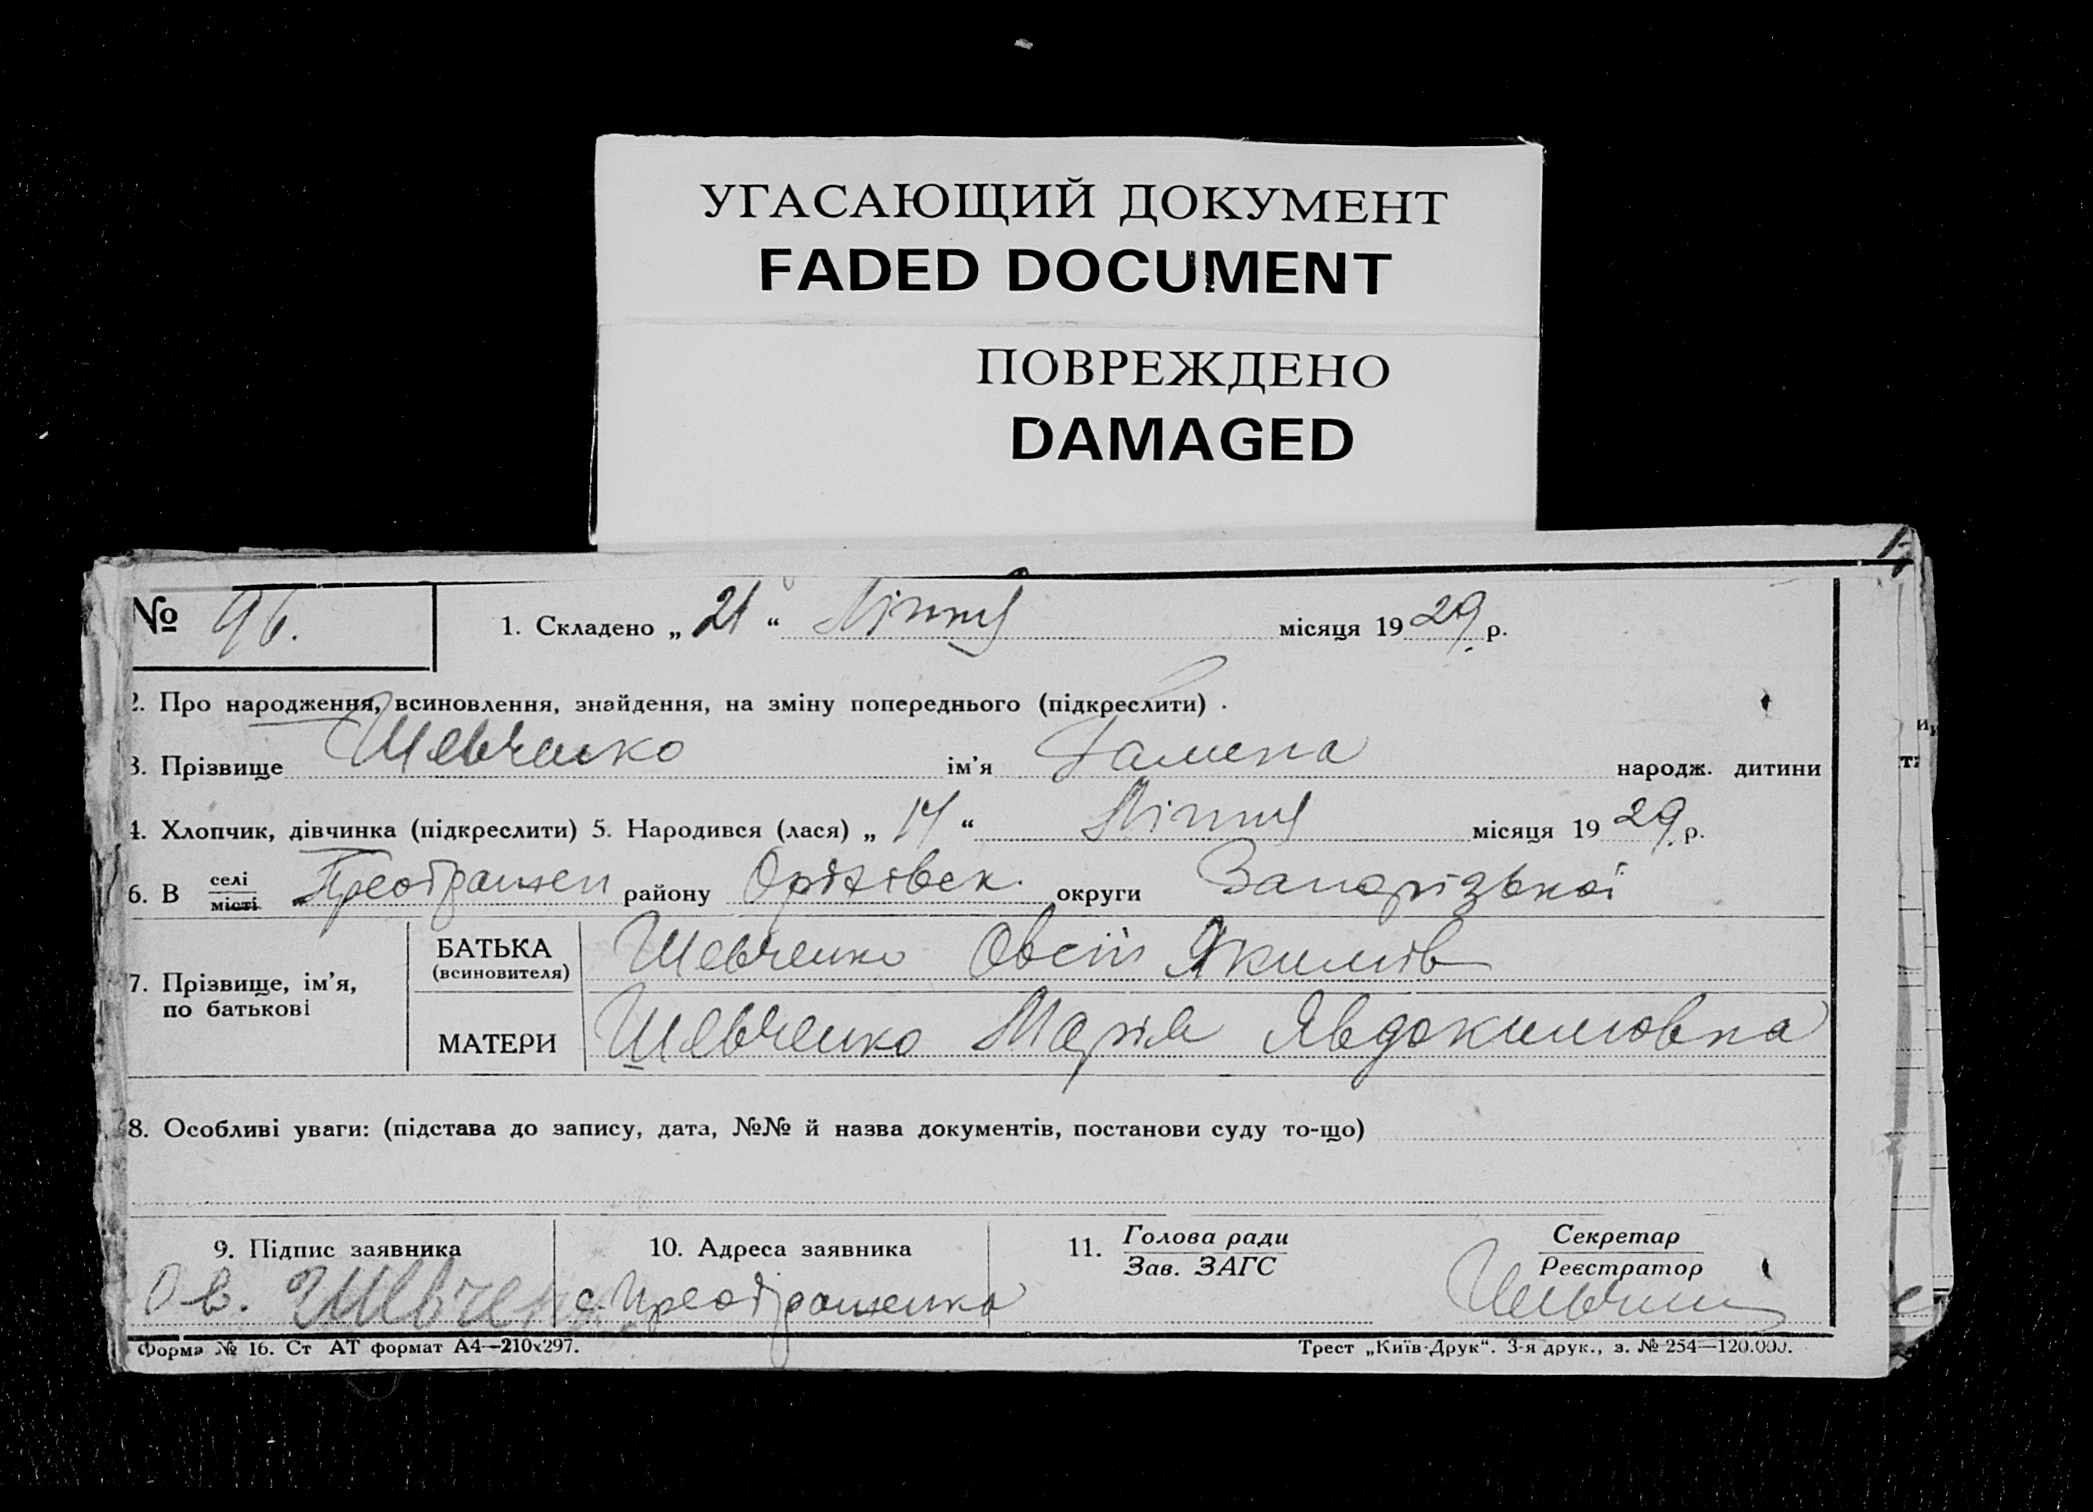 УГАСАЮЩИЙ ДОКУМЕНТ
FADED DOCUMENT
ПОВРЕЖДЕНО
DAMAGED
№ 96.
1. Складено „ 21 “ Липня місяця 19 29 р.
2. Про народження, всиновлення, знайдення, на зміну попереднього (підкреслити) .
3. Прізвище Шевченко ім'я народж. дитини
4. Хлопчик, дівчинка (підкреслити) 5. Народився (лася) „ 14 “ Липня місяця 19 29 р.
6. В селі місті Преображен району Оріхівск. округи Запорізької
7. Прізвище, ім'я, по батькові
БАТЬКА (всиновителя) Шевченко Овсій Якимов
МАТЕРИ Шевченко Марія Явдокимовна
8. Особливі уваги: (підстава до запису, дата, №№ й назва документів, постанови суду то-що)
9. Підпис заявника
Ов. Шевченко
10. Адреса заявника
с. Преображенка
11. Голова ради
Зав. ЗАГС
Секретар
Реєстратор
Форма № 16. Ст АТ формат А4—210х297.
Трест „Київ-Друк“. 3-я друк., з. № 254—120.000.